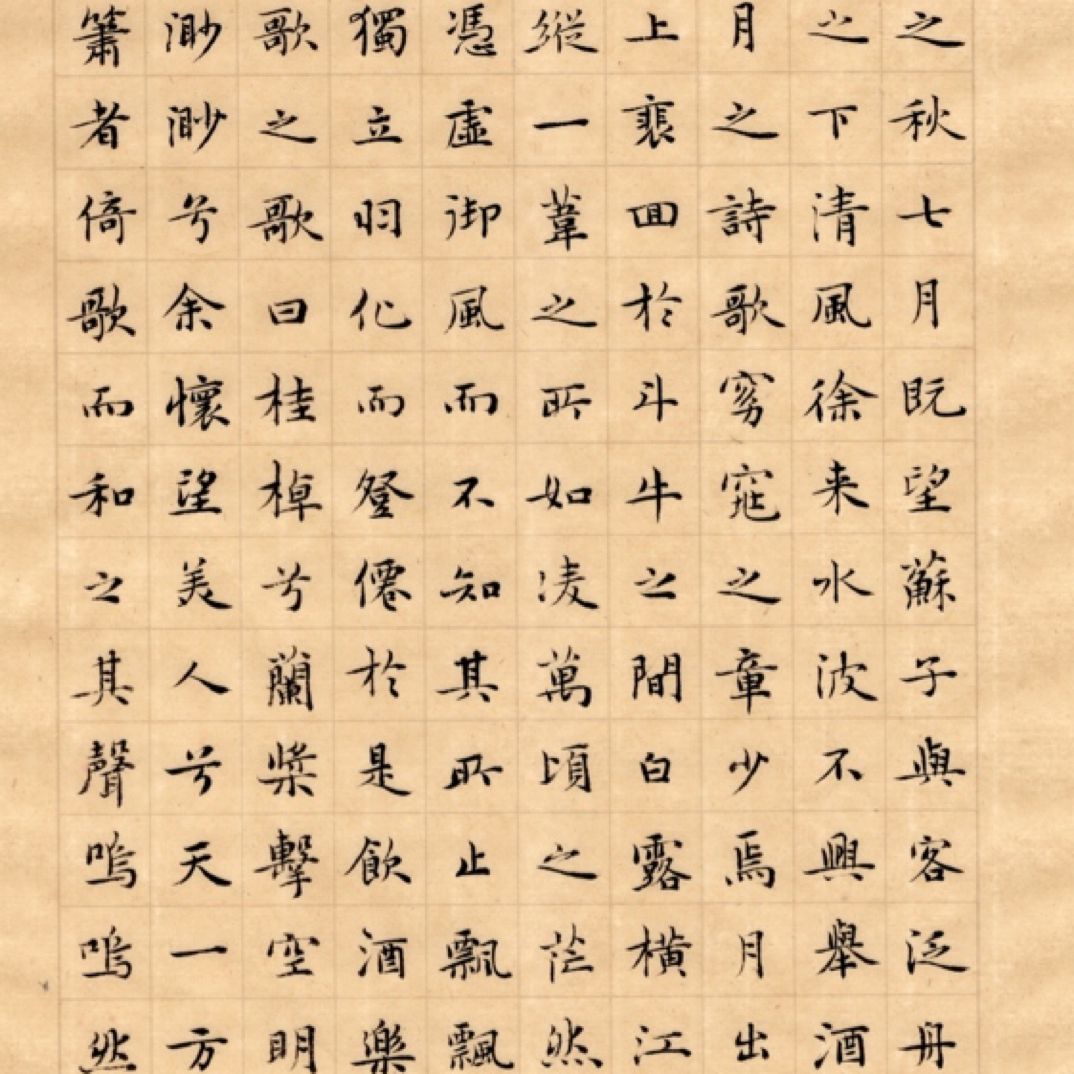 之秋七月既望蘇子與客泛舟
之下清風徐来水波不興舉酒
月之詩歌窈窕之章少焉月出
上裵囬於斗牛之間白露橫江
縱一葦之所如凌萬頃之茫然
憑虛御風而不知其所止飄飄
獨立羽化而登僊於是飲酒樂
歌之歌曰桂棹兮蘭槳擊空明
渺渺兮余懷望美人兮天一方
簫者倚歌而和之其聲嗚嗚然